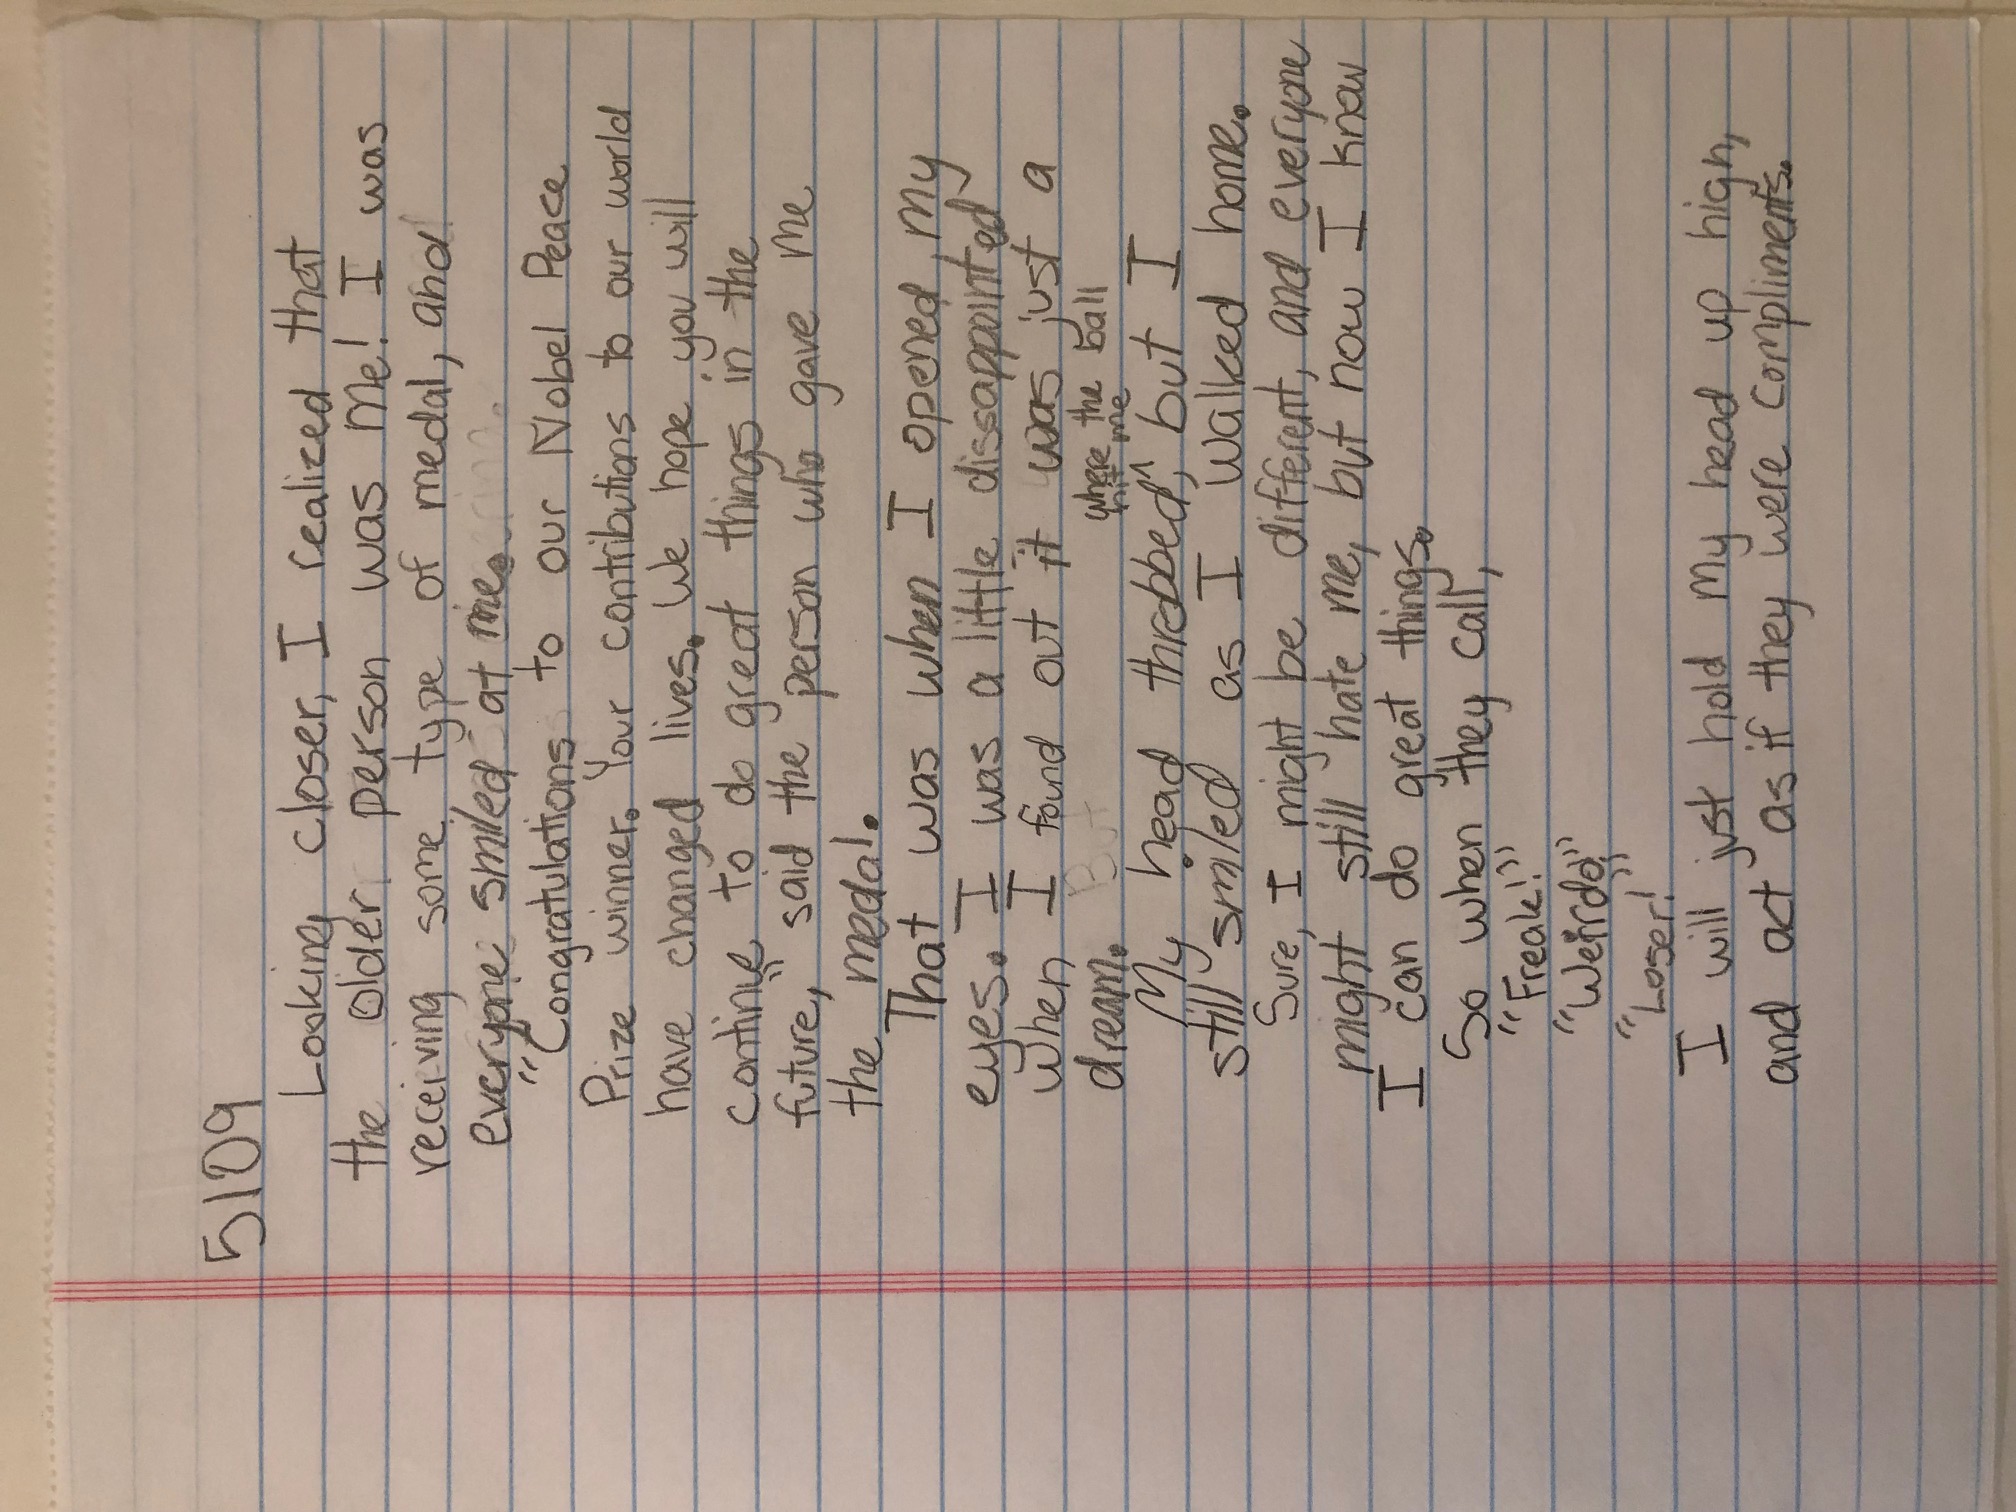 5109
Looking closer, I realized that
the older person was me! I was
receiving some type of medal, and
everyone smiled at me.
"Congratulations to our Nobel Peace
Prize winner. Your contributions to our world
have changed lives. We hope you will
continue to do great things in the
future," said the person who gave me
the medal.
That was when I opened my
eyes. I was a little dissappointed
when I found out it was just a
dream.
where the ball
hit me
My head throbbed^, but I
still smiled as I walked home.
Sure, I might be different, and everyone
might still hate me, but now I know
I can do great things.
So when they call,
"Freak!"
"Weirdo!"
"Loser!"
I will just hold my head up high,
and act as if they were compliments.